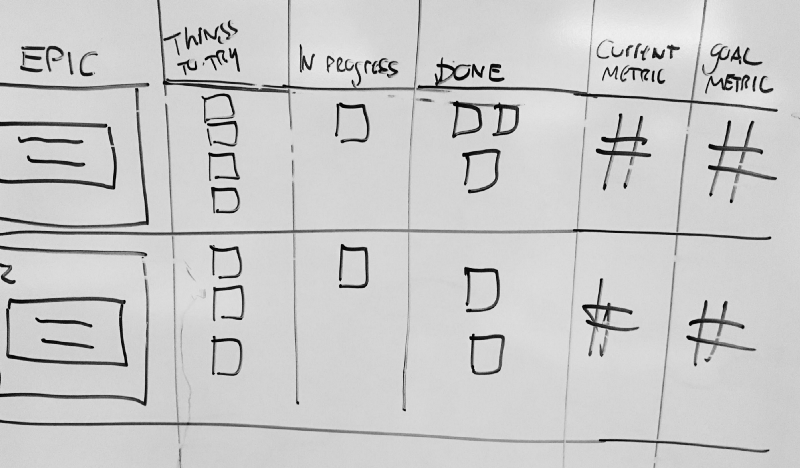 EPIC
THINGS
TO TRY
IN PROGRESS
DONE
CURRENT
METRIC
GOAL
METRIC
#
#
2
#
#